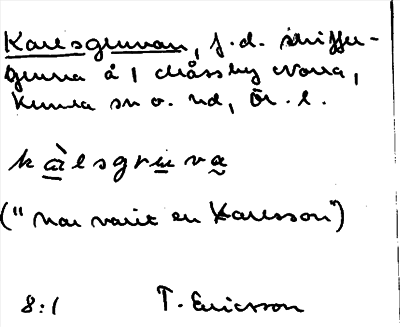 Karlsgruvan, f.d. skiffer-
gruva å 1 Klåssby Norra,
Kumla sn o. hd, Ör. l.
kàlsgruva
("har varit en Karlsson")
8:1 T. Ericsson